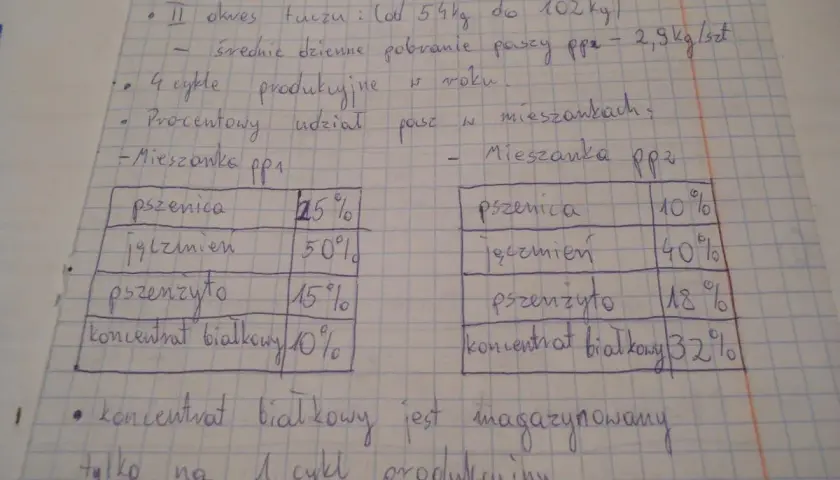 • II okres tuczu: (od 54kg do 102kg)
– średnie dzienne pobranie paszy pp2 – 2,9kg/szt
• 4 cykle produkcyjne w roku.
• Procentowy udział pasz w mieszankach:
– Mieszanka pp1
– Mieszanka pp2
pszenica 25%
jęczmień 50%
pszenżyto 15%
koncentrat białkowy 10%
pszenica 10%
jęczmień 40%
pszenżyto 18%
koncentrat białkowy 32%
• koncentrat białkowy jest magazynowany
tylko na 1 cykl produkcyjny